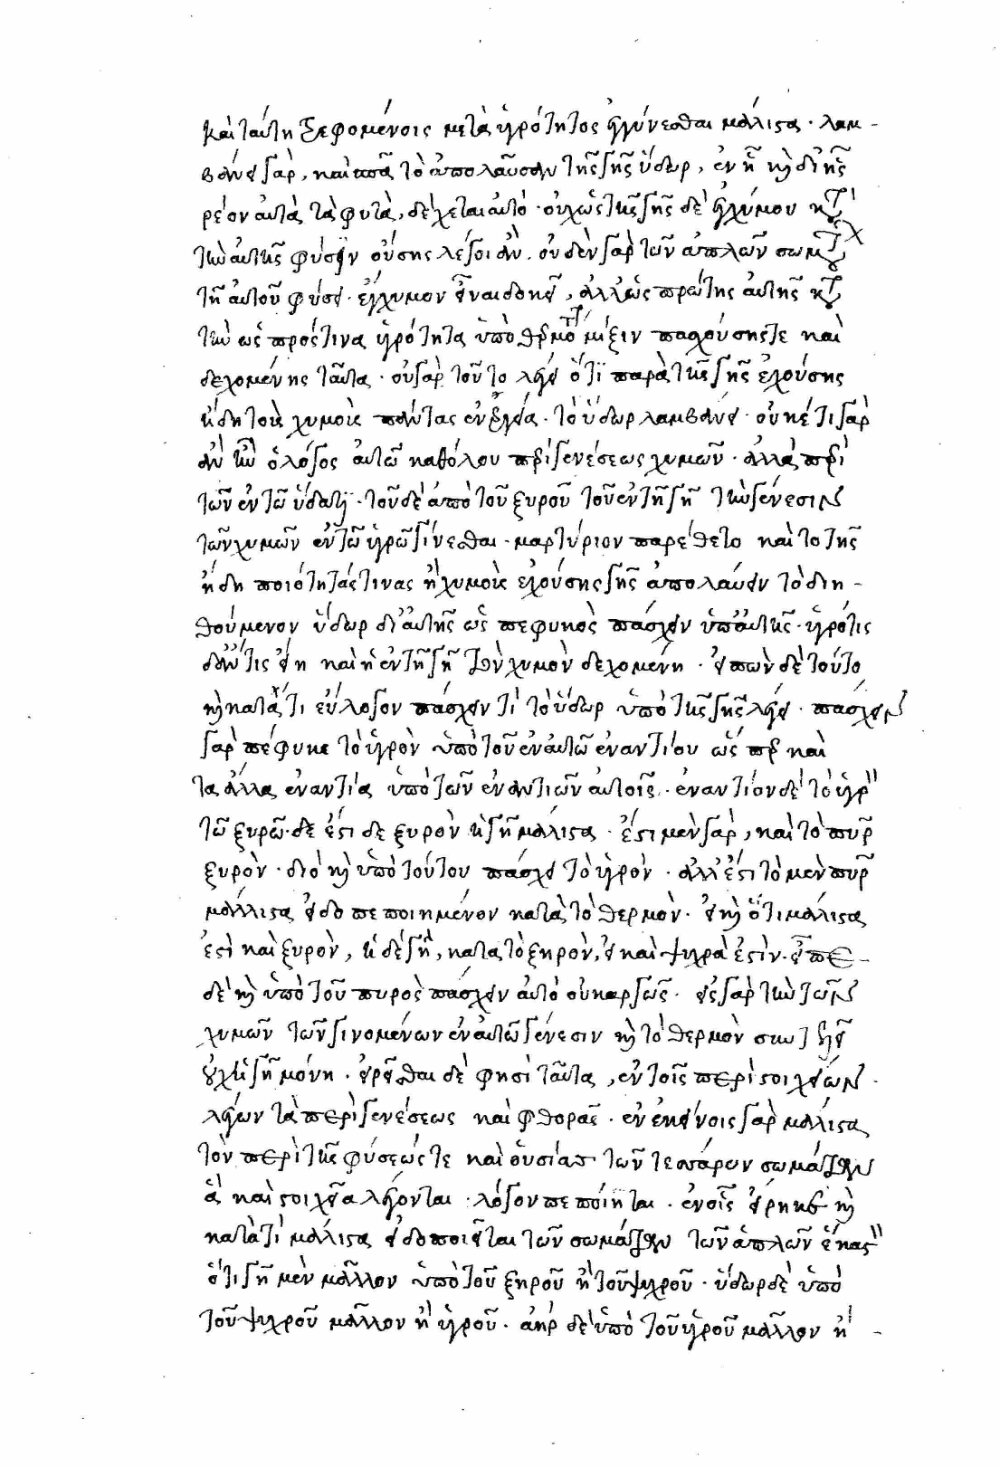 καὶ ταύτῃ τρεφομένοις μετὰ ὑγρότητος ἐγγίνεσθαι μάλιστα · λαμ-
βάνει γὰρ, καὶ πᾶν τὸ ἀπολαῦσαν τῆς γῆς ὕδωρ, ἐν ᾗ καὶ δι' ἧς
ρέον αὐτὰ τὰ φυτὰ, δέχεται αὐτό · οὐχ ὡς τῆς γῆς δὲ ἐγχύμου κατὰ
τὴν αὐτῆς φύσιν οὔσης λέγοι ἂν · οὐδὲν γὰρ τῶν ἁπλῶν σωμάτων
τῇ αὐτοῦ φύσει · ἔγχυμον εἶναι δοκεῖ, ἀλλ' ὡς πρώτης αὐτῆς κατὰ
τὴν ὡς πρός τινα ὑγρότητα ὑπὸ θερμοῦ μίξιν πασχούσης τε καὶ
δεχομένης ταῦτα · οὐ γὰρ τοῦτο λέγει ὅτι παρὰ τῆς γῆς ἐχούσης
ἤδη τοὺς χυμοὺς πάντας ἐνεργείᾳ · τὸ ὕδωρ λαμβάνει · οὐκέτι γὰρ
ἂν ἦν ὁ λόγος αὐτῷ καθόλου περὶ γενέσεως χυμῶν · ἀλλὰ περὶ
τῶν ἐν τῷ ὕδατι · τοῦ δὲ ἀπὸ τοῦ ξηροῦ τοῦ ἐν τῇ γῇ τὴν γένεσιν
τῶν χυμῶν ἐν τῷ ὑγρῷ γίνεσθαι · μαρτύριον παρέθετο καὶ τὸ τῆς
ἤδη ποιότητάς τινας ἢ χυμοὺς ἐχούσης γῆς ἀπολαύειν τὸ διη-
θούμενον ὕδωρ δι' αὐτῆς ὡς πεφυκὸς πάσχειν ὑπ' αὐτῆς · ὑγρότης
δ' ἄν τις εἴη καὶ ἡ ἐν τῇ γῇ τὸν χυμὸν δεχομένη · εἰπὼν δὲ τοῦτο
καὶ κατὰ τί εὔλογον πάσχειν τι τὸ ὕδωρ ὑπὸ τῆς γῆς λέγει · πάσχειν
γὰρ πέφυκε τὸ ὑγρὸν ὑπὸ τοῦ ἐν αὐτῷ ἐναντίου ὥσπερ καὶ
τὰ ἄλλα ἐναντία ὑπὸ τῶν ἐναντίων αὐτοῖς · ἐναντίον δὲ τὸ ὑγρὸν
τῷ ξηρῷ · δὲ ἔστι δὲ ξηρὸν ἡ γῆ μάλιστα · ἔστι μὲν γὰρ, καὶ τὸ πῦρ
ξηρὸν · διὸ καὶ ὑπὸ τούτου πάσχει τὸ ὑγρόν · ἀλλ' ἔστι τὸ μὲν πῦρ
μάλιστα εἰδοπεποιημένον κατὰ τὸ θερμὸν · εἰ καὶ ὅτι μάλιστα
ἐστὶ καὶ ξηρὸν, ἡ δὲ γῆ, κατὰ τὸ ξηρὸν, εἰ καὶ ψυχρά ἐστιν · εἶπε
δὲ καὶ ὑπὸ τοῦ πυρὸς πάσχειν αὐτὸ οὐκ ἀργῶς · εἰς γὰρ τὴν τῶν
χυμῶν τῶν γινομένων ἐν αὐτῷ γένεσιν καὶ τὸ θερμὸν συντελεῖ
οὐχ ἡ γῆ μόνη · εἰρῆσθαι δὲ φησὶ ταῦτα, ἐν τοῖς περὶ στοιχείων ·
λέγων τὰ περὶ γενέσεως καὶ φθορᾶς · ἐν ἐκείνοις γὰρ μάλιστα
τὸν περὶ τῆς φύσεώς τε καὶ οὐσίας τῶν τεσσάρων σωμάτων
ἃ καὶ στοιχεῖα λέγονται · λόγον πεποίηται · ἐν οἷς εἴρηκε καὶ
κατὰ τί μάλιστα εἰδοποιεῖται τῶν σωμάτων τῶν ἁπλῶν ἕκαστον
ὅτι γῆ μὲν μᾶλλον ὑπὸ τοῦ ξηροῦ ἢ τοῦ ψυχροῦ · ὕδωρ δὲ ὑπὸ
τοῦ ψυχροῦ μᾶλλον ἢ ὑγροῦ · ἀὴρ δὲ ὑπὸ τοῦ ὑγροῦ μᾶλλον ἢ -